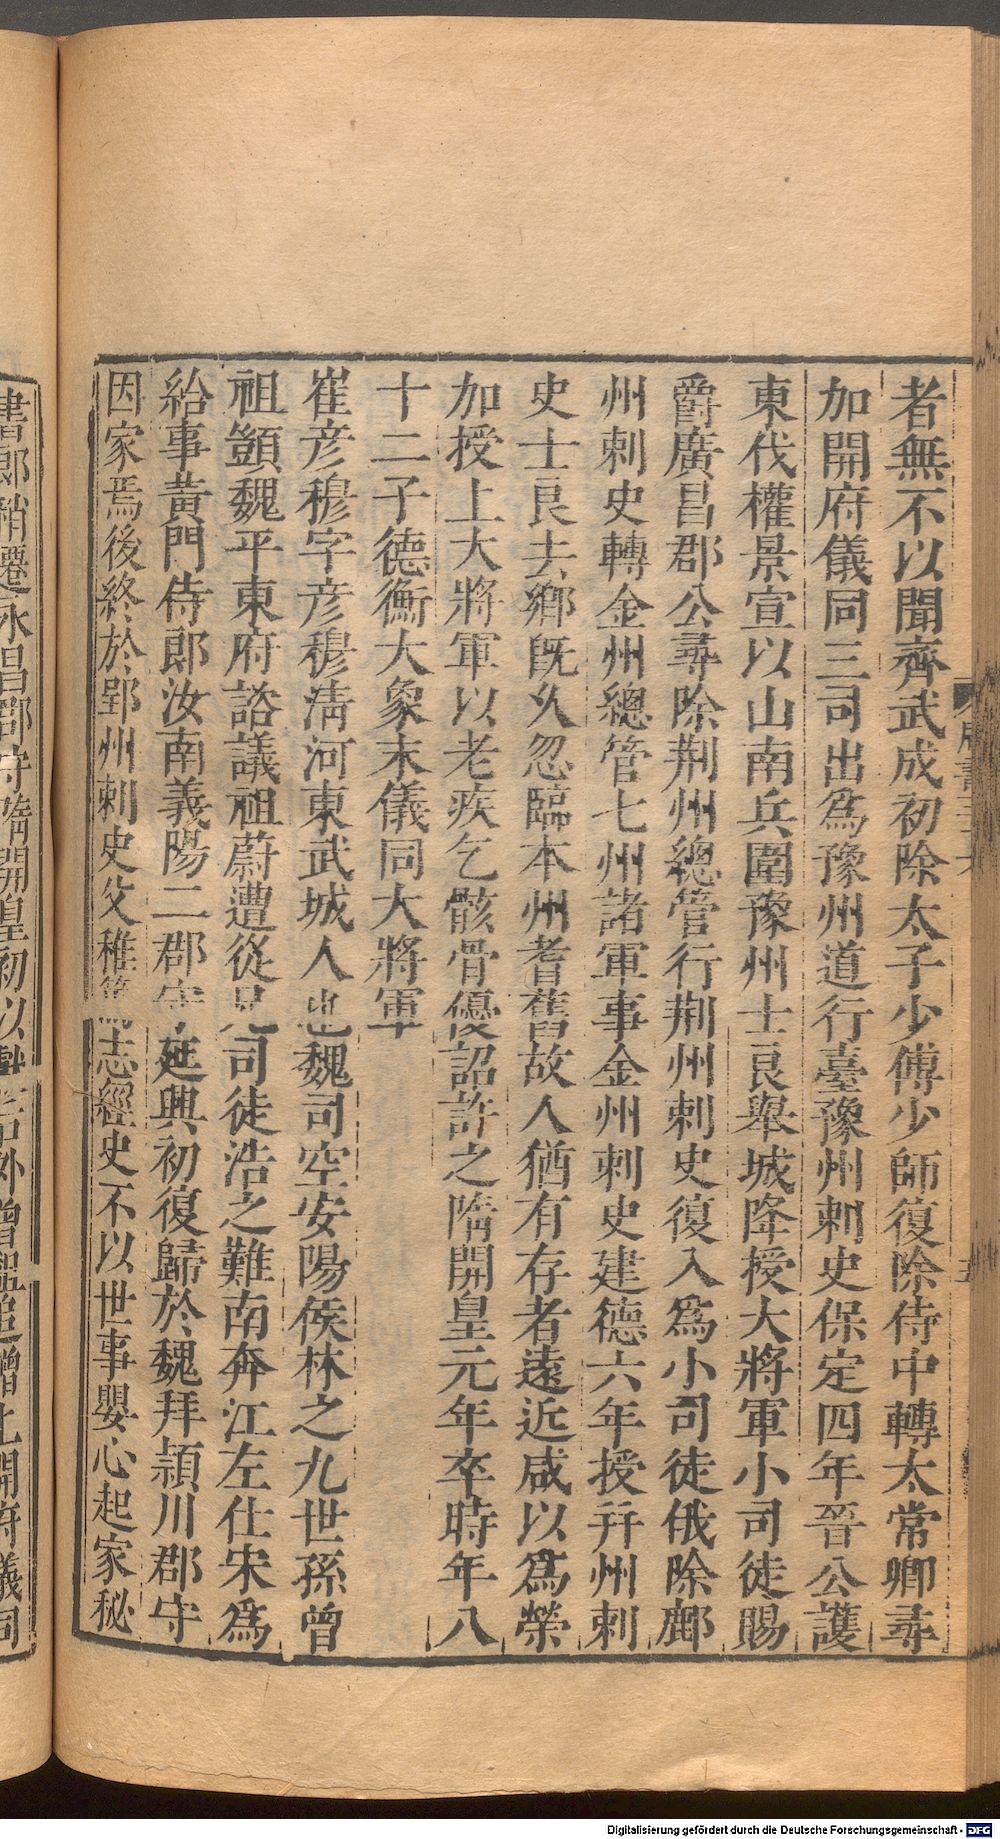 者無不以聞齊武成初除太子少傅少師復除侍中轉太常卿尋
加開府儀同三司出爲豫州道行臺豫州刺史保定四年晉公護
東伐權景宣以山南兵圍豫州士良舉城降授大將軍小司徒賜
爵廣昌郡公尋除荆州總管行荆州刺史復入爲小司徒俄除鄜
州刺史轉金州總管七州諸軍事金州刺史建德六年授幷州刺
史士良去鄉旣久忽臨本州耆舊故人猶有存者遠近咸以爲榮
加授上大將軍以老疾乞骸骨優詔許之隋開皇元年卒時年八
十二子德衡大象末儀同大將軍
崔彦穆字彦穆淸河東武城人也魏司空安陽侯林之九世孫曾
祖顗魏平東府諮議祖蔚遭從兄司徒浩之難南奔江左仕宋爲
給事黃門侍郞汝南義陽二郡守延興初復歸於魏拜潁川郡守
因家焉後終於郢州刺史父稚篤志經史不以世事嬰心起家秘
書郞稍遷永昌郡守隋開皇初以獻后外曾祖追贈上開府儀同
Digitalisierung gefördert durch die Deutsche Forschungsgemeinschaft - DFG